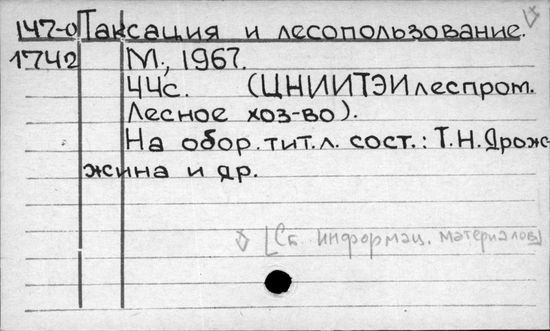 147-0 Таксация и лесопользование.
1742 М., 1967.
44с. (ЦНИИТЭИлеспром.
Лесное хоз-во).
На обор. тит. л. сост.: Т.Н. Дрож-
жина и др.
[Сб информац. материалов]